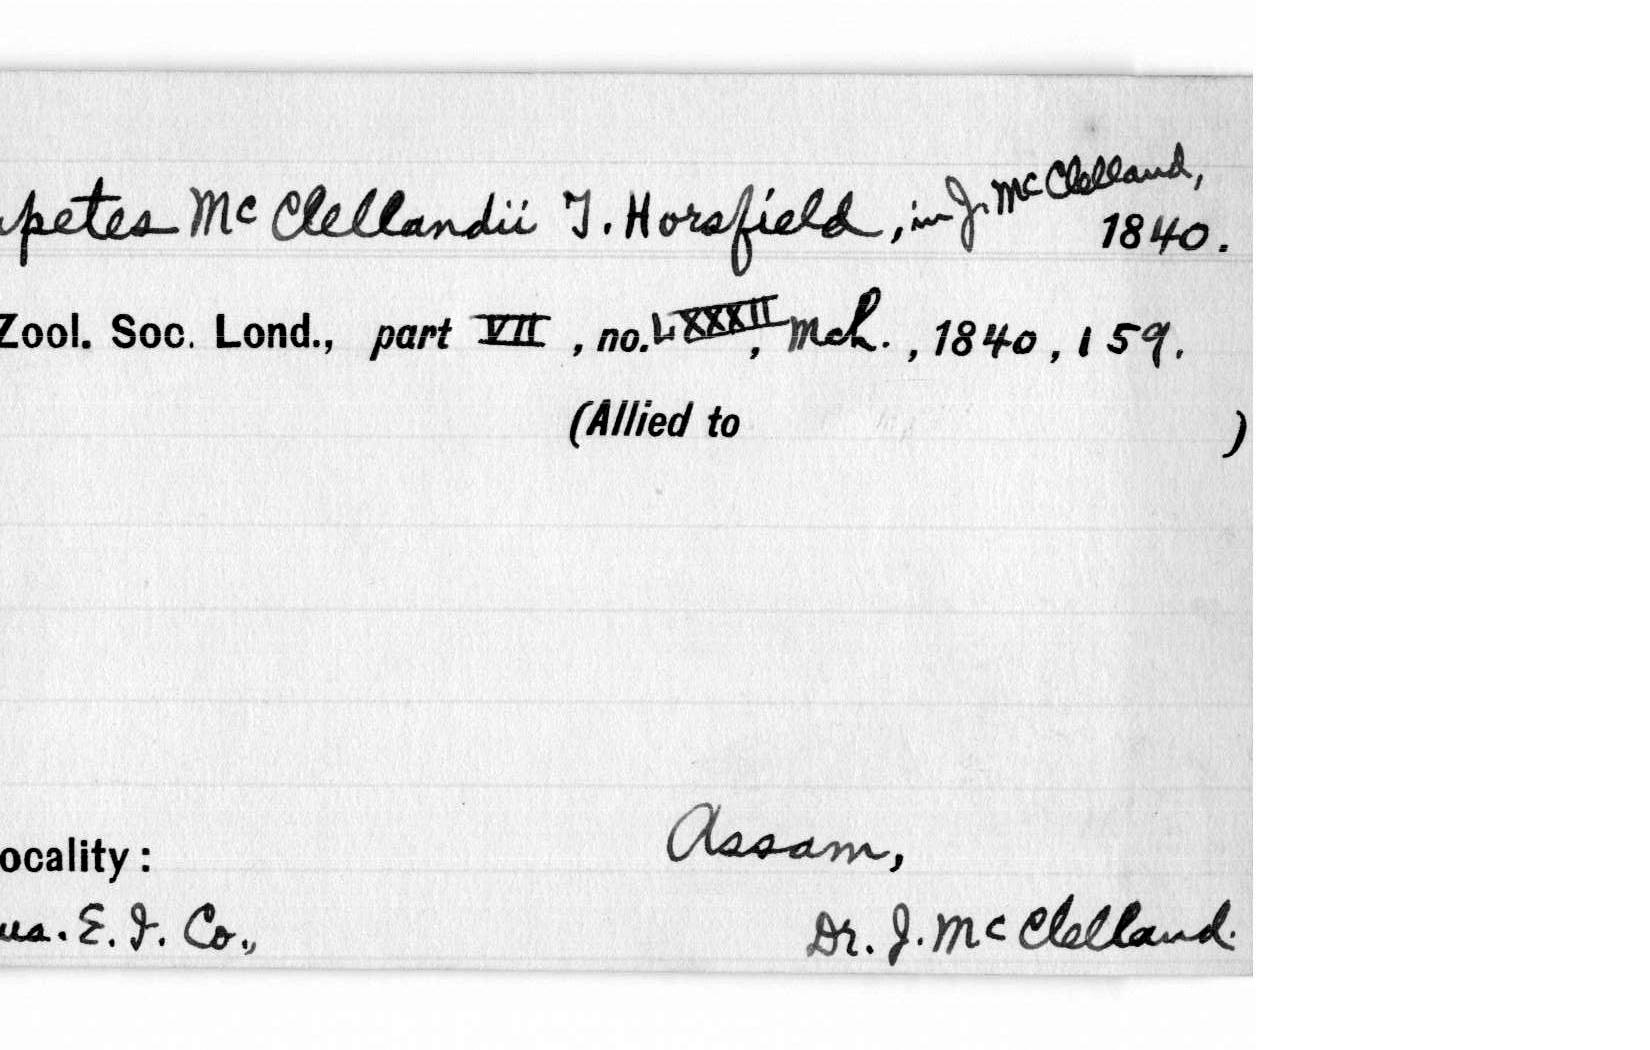 petes McClellandii T. Horsfield, in J. McClelland,
1840.
Zool. Soc. Lond., part VII, no. LXXXII, Mch., 1840, 159.
(Allied to )
ocality: Assam,
us. E. I. Co., Dr. J. McClelland.